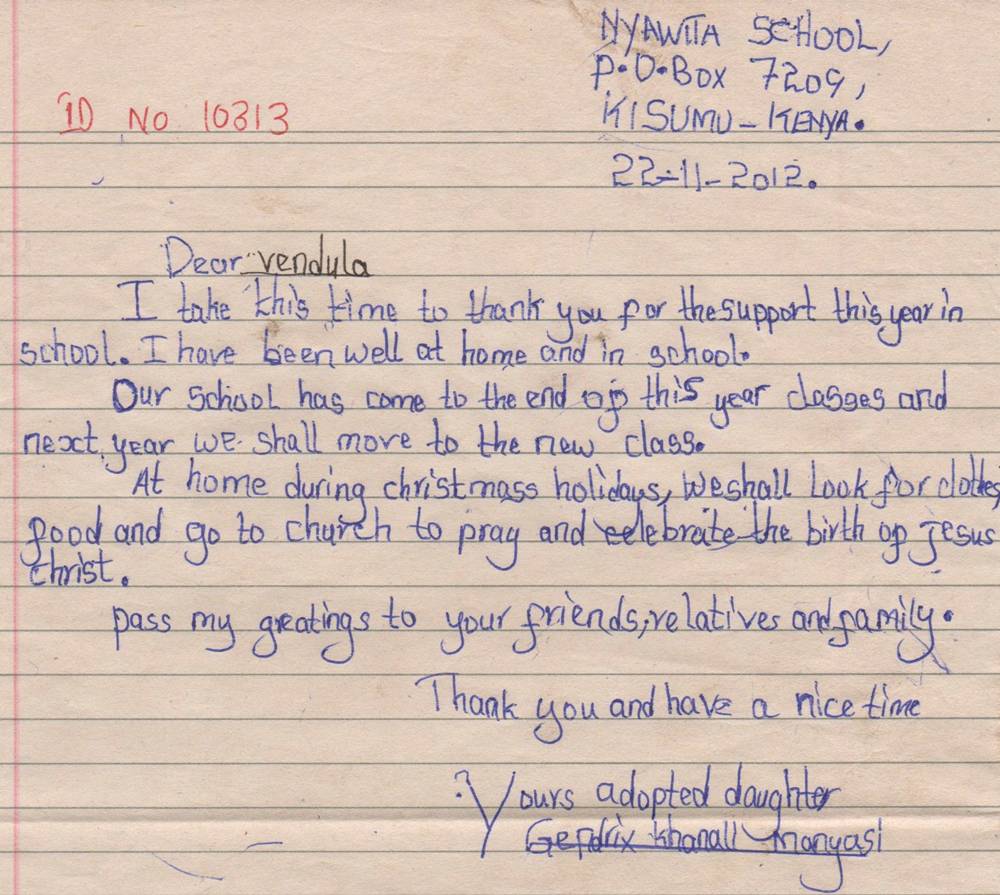 NYAWITA SCHOOL,
P.O.BOX 7209,
ID NO 10313
KISUMU - KENYA.
22-11-2012.
Dear vendula
I take this time to thank you for the support this year in
school. I have been well at home and in school.
Our school has come to the end of this year classes and
next year we shall move to the new class.
At home during christmass holidays, we shall look for clothes,
food and go to church to pray and celebrate the birth of Jesus
christ.
pass my greatings to your friends, relatives and family.
Thank you and have a nice time
Yours adopted daughter
Gendrix Khanali Manyasi